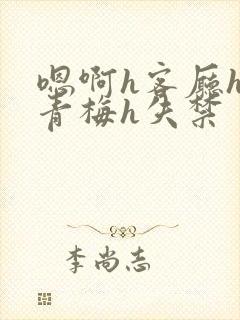 嗯啊h客厅h
青梅h失禁
李尚志